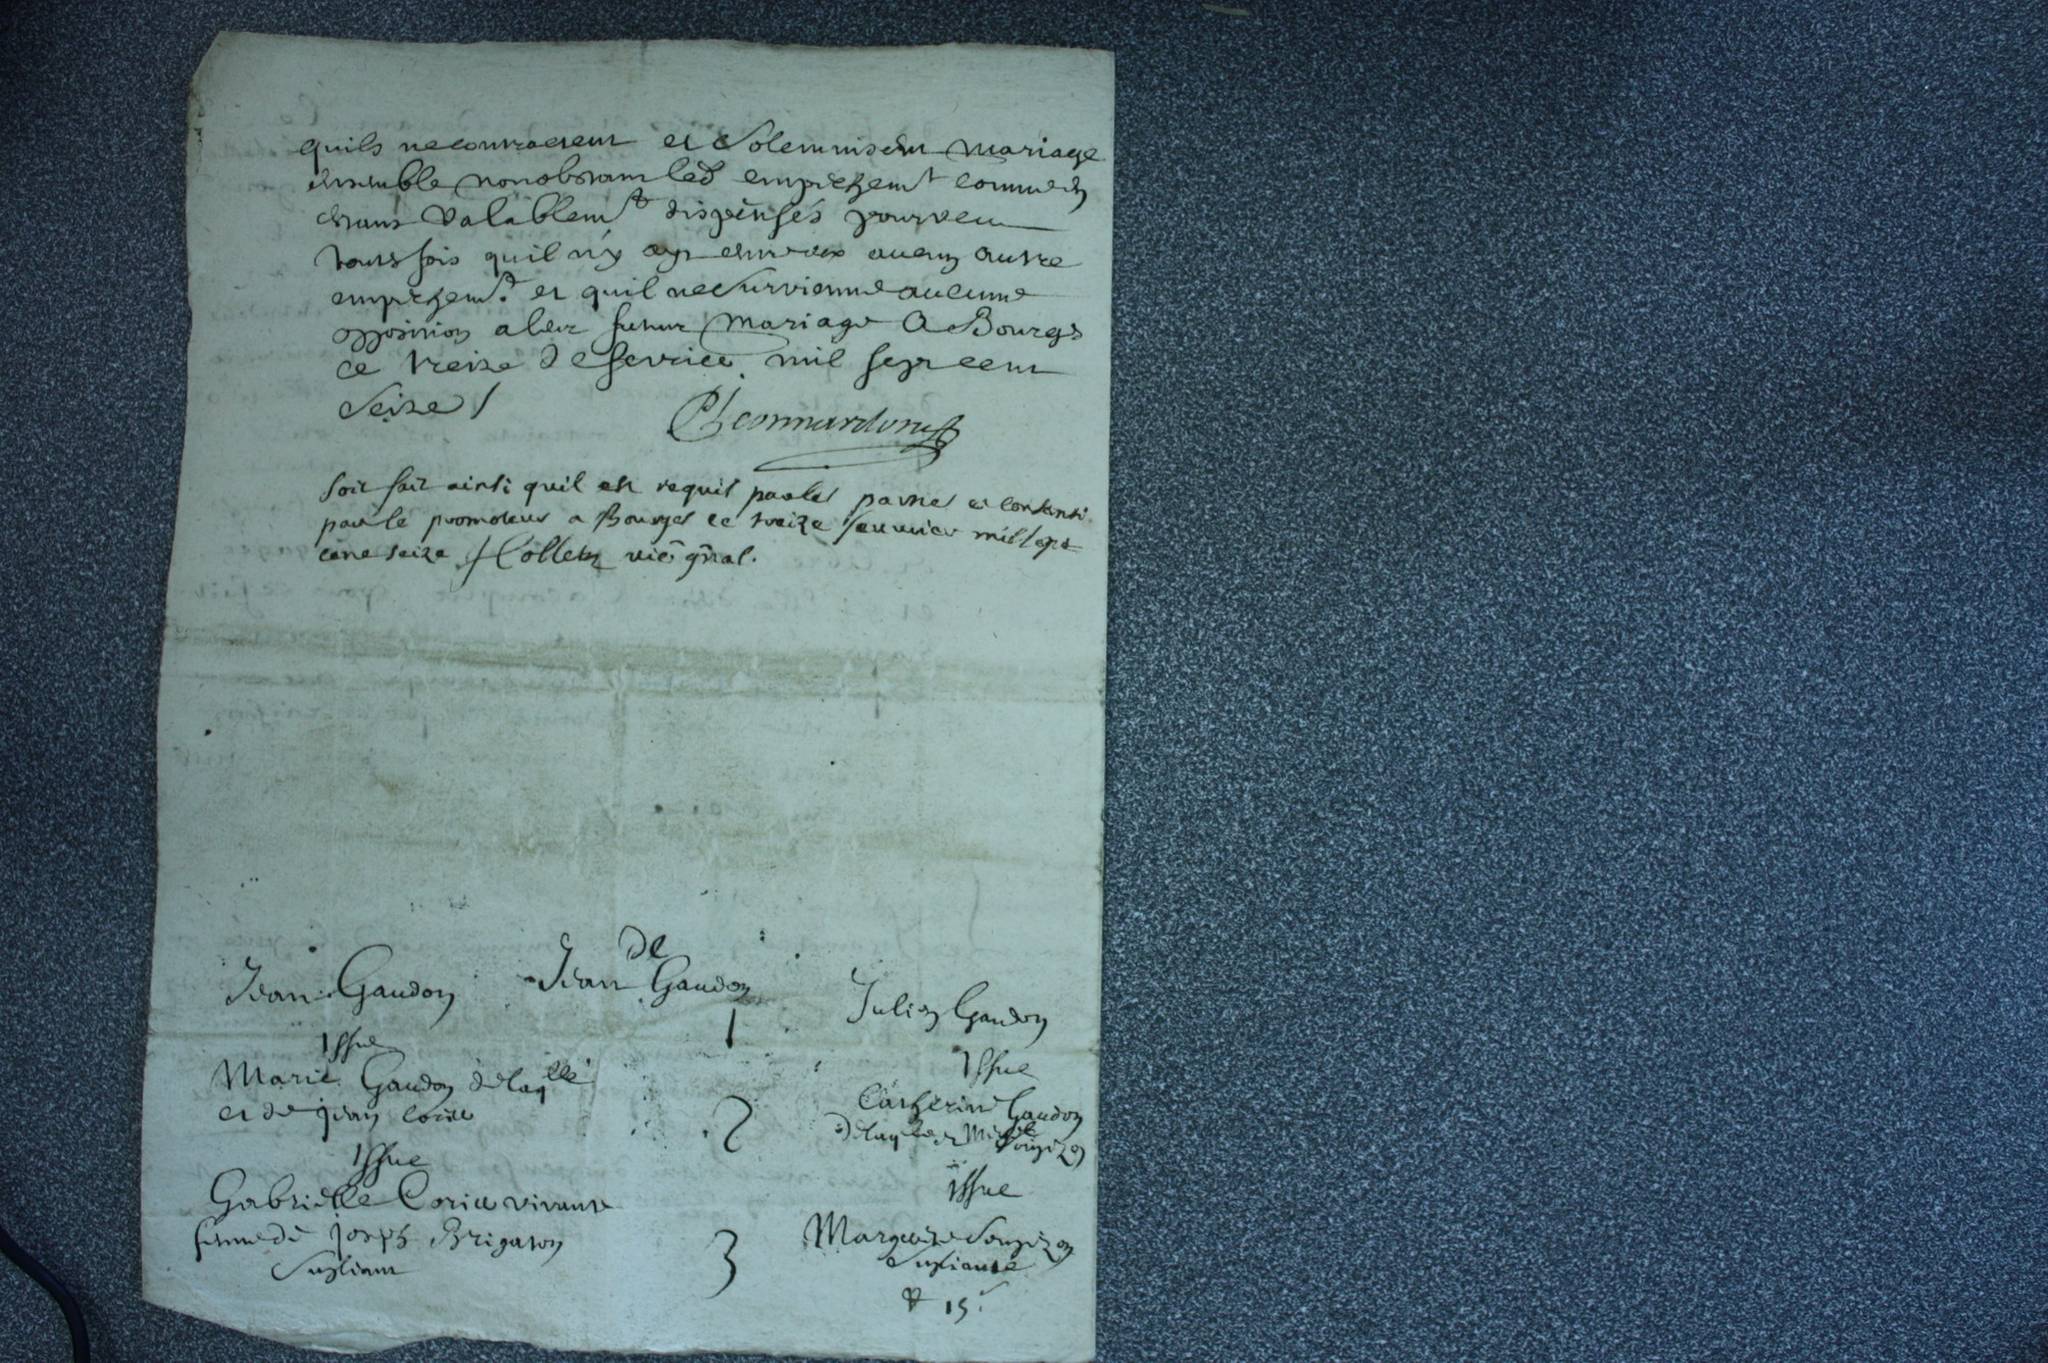 quils ne contractent et solemnisent mariage
ensemble nonobstant led empeschemt comme en
estans valablemt dispensés pourveu
toutesfois quil n'y ayt entr'eux aucun autre
empeschemt et quil ne survienne aucune
opposition a leur futur mariage A Bourges
ce treize de fevrier mil sept cent
seize /
soit fait ainsi quil est requis par les parties et consenti
par le promoteur a Bourges ce treize feuurier mil sept
cent seize / Collet vic gnal.
de
Jean Gaudon Jean Gaudon Julien Gaudon
1
issue issue
Marie Gaudon de laqlle Catherine Gaudon
et de jean de laqlle et
2
issue issue
Gabrielle vivante Marguerite
femme de joseph Brigaton supliante
supliant
3
15s